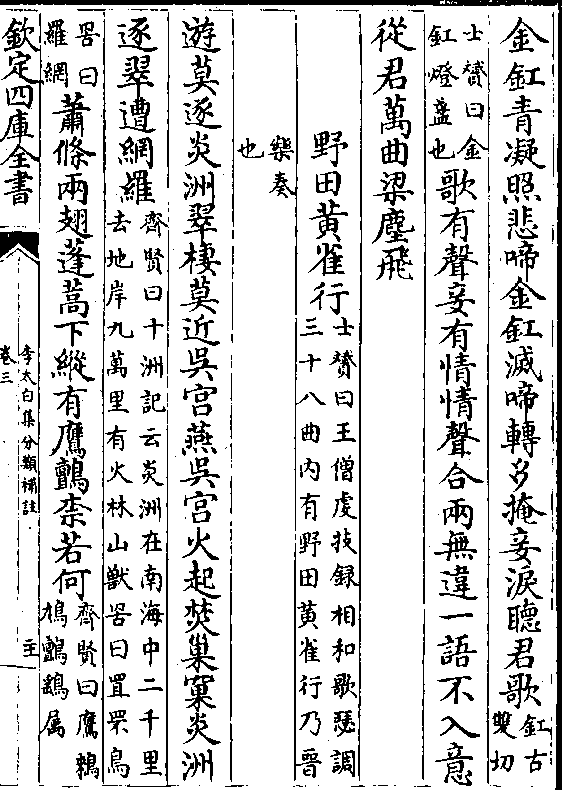 金釭青凝照悲啼金釭滅啼轉多掩妾淚聽君歌釭古雙切
士贇曰金釭燈盞也歌有聲妾有情情聲合兩無違一語不入意
從君萬曲梁塵飛
野田黃雀行士贇曰王僧虔技録相和歌瑟調三十八曲内有野田黄雀行乃晉
樂奏也
遊莫逐炎洲翠棲莫近吳宫燕吳宫火起焚巢窠炎洲
逐翠遭網羅齊賢曰十洲記云炎洲在南海中二千里去地岸九萬里有火林山獸罟曰罝罘鳥
罟曰羅網蕭條兩翅蓬蒿下縱有鷹鸇柰若何齊賢曰鷹鶙鳩鸇鷂属
欽定四庫全書
李太白集分類補註
卷三